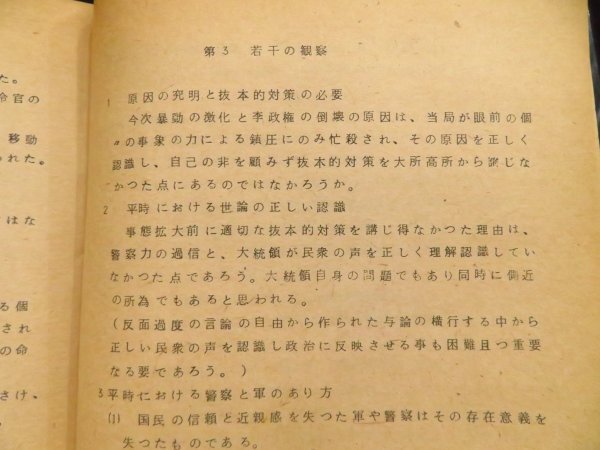 た。
令官の
移動
られた。
はな
る個
され
の命
さけ、
第3 若干の観察
1 原因の究明と抜本的対策の必要
今次暴動の激化と李政権の倒壊の原因は、当局が眼前の個
〃の事象の力による鎮圧にのみ忙殺され、その原因を正しく
認識し、自己の非を顧みず抜本的対策を大所高所から講じな
かつた点にあるのではなかろうか。
2 平時における世論の正しい認識
事態拡大前に適切な抜本的対策を講じ得なかつた理由は、
警察力の過信と、大統領が民衆の声を正しく理解認識してい
なかつた点であろう。大統領自身の問題でもあり同時に側近
の所為でもあると思われる。
(反面過度の言論の自由から作られた与論の横行する中から
正しい民衆の声を認識し政治に反映させる事も困難且つ重要
なる要であろう。)
3平時における警察と軍のあり方
(1) 国民の信頼と近親感を失つた軍や警察はその存在意義を
失つたものである。